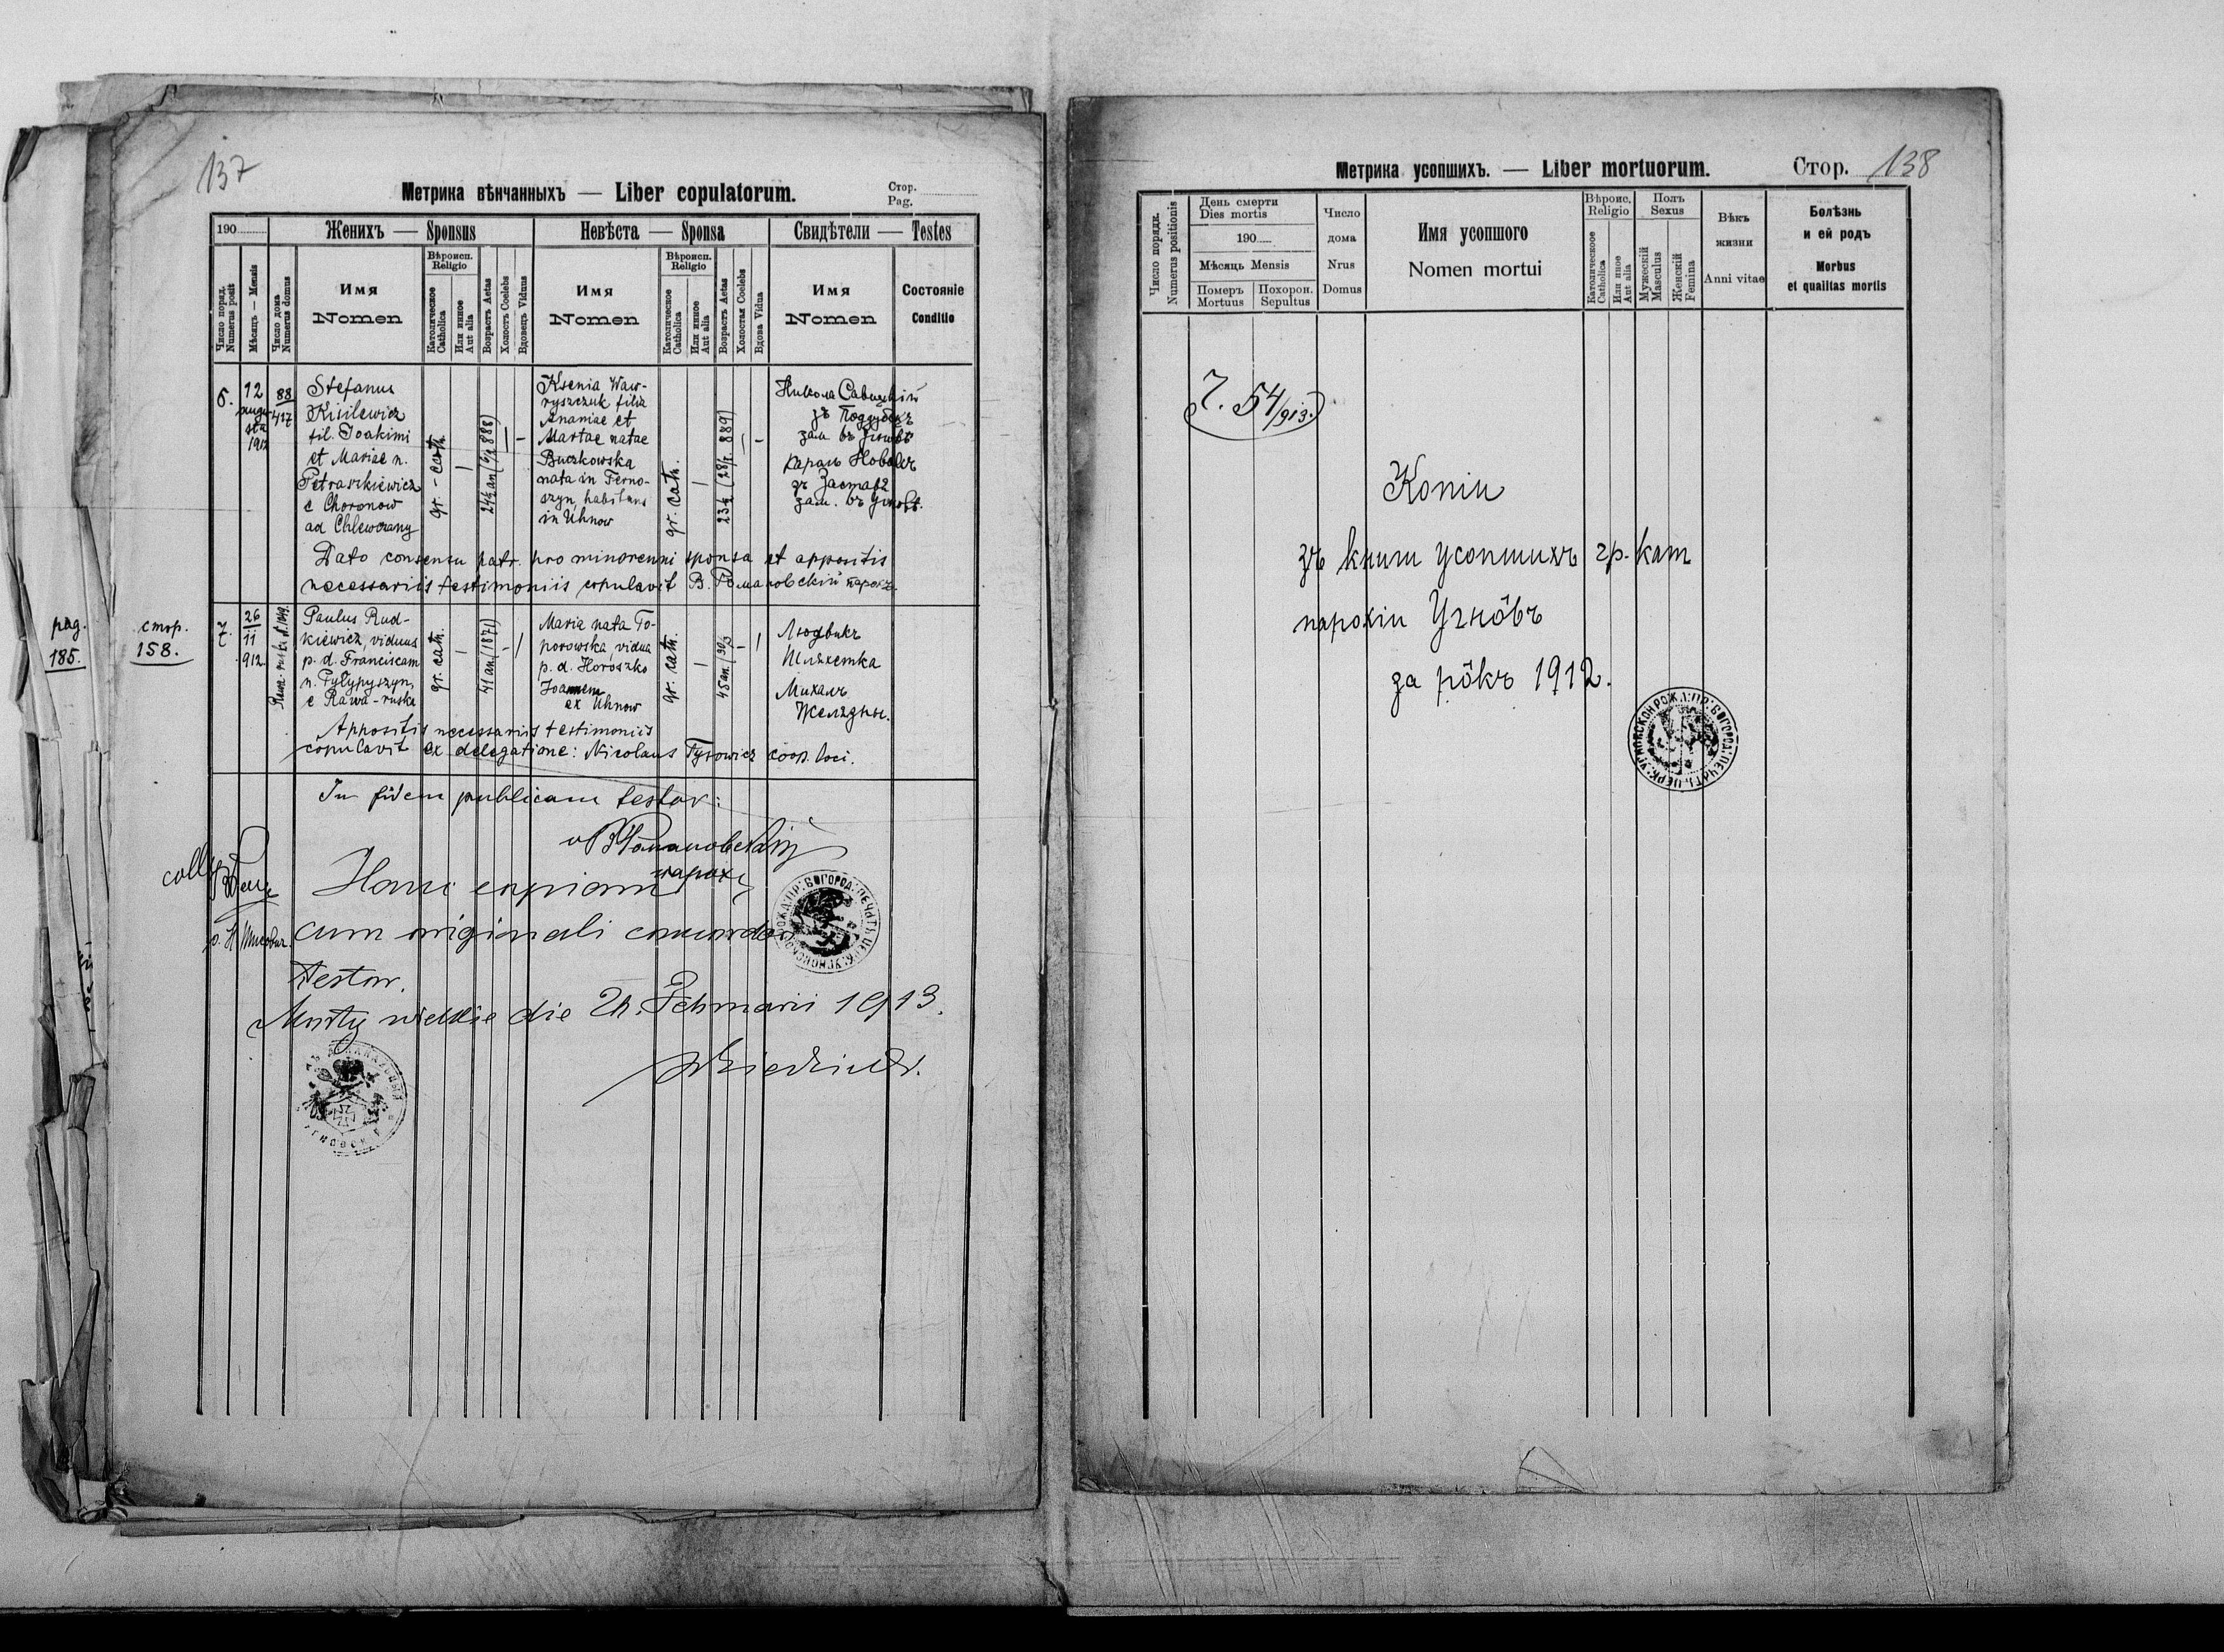 137
Метрика вѣнчанныхъ — Liber copulatorum.
Стор.
Pag.
190
Женихъ — Sponsus
Невѣста — Sponsa
Свидѣтели — Testes
Число поряд.
Numerus posit
Мѣсяцъ — Mensis
Число дома
Numerus domus
Имя
Nomen
Вѣроисп.
Religio
Католическое
Catholica
Или инное
Aut alia
Возрастъ Aetas
Холостъ Coelebs
Вдовецъ Viduus
Имя
Nomen
Вѣроисп.
Religio
Католическое
Catholica
Или инное
Aut alia
Возрастъ Aetas
Холостая Coelebs
Вдова Vidua
Имя
Nomen
Состоянiе
Conditio
6.
12
augu-
sta
1912
88
417
Stefanus
Kisilewicz
fil. Joakimi
et Mariae n.
Petraszkiewicz
e Choronow
ad Chlewczany
gr.-cath.
Ksenia Waw-
ryszczuk filia
Ananiae et
Martae natae
Buczkowska
nata in Ferno-
szyn, habitans
in Uhnow
gr. cath.
Никола Савицкій
зъ Поддубецъ
зам. въ Угновѣ
Кароль Новакъ
зъ Заставя
зам. въ Угновѣ.
Dato consensu patr. pro minorenni sponsa et appositis
necessariis testimoniis copulavit В. Романовскій парохъ.
pag.
185.
стор.
158.
7.
26
11
912
Paulus Rud-
kiewicz, viduus
p. d. Franciscam
n. Pyłypyszyn,
e Rawa-ruska
gr. cath.
41 an. (1871)
Maria nata To-
porowska, vidua
p. d. Horoszko
Joannem
ex Uhnow
gr. cath.
Людвикъ
Шляхетка
Михалъ
Желѣзны.
Appositis necessariis testimoniis
copulavit ex delegatione: Nicolaus Tysowicz coop. loci.
In fidem publicam testor:
В Романовскій
парохъ
Hanc copiam
cum originali concordare
testor.
Mosty wielkie die 24. Februarii 1913.
Метрика усопшихъ. — Liber mortuorum.
Стор. 138
Число порядк.
Numerus positionis
День смерти
Dies mortis
190
Мѣсяцъ Mensis
Померъ
Mortuus
Похорон.
Sepultus
Число
дома
Nrus
Domus
Имя усопшого
Nomen mortui
Вѣроис.
Religio
Католическоое
Catholica
Или иное
Aut alia
Полъ
Sexus
Мужескій
Masculus
Женскій
Femina
Вѣкъ
жизни
Anni vitae
Болѣзнь
и ей родъ
Morbus
et qualitas mortis
Ч. 54/913.
Копія
зъ книги усопшихъ гр. кат
парохіи Угнôвъ
за рôкъ 1912.